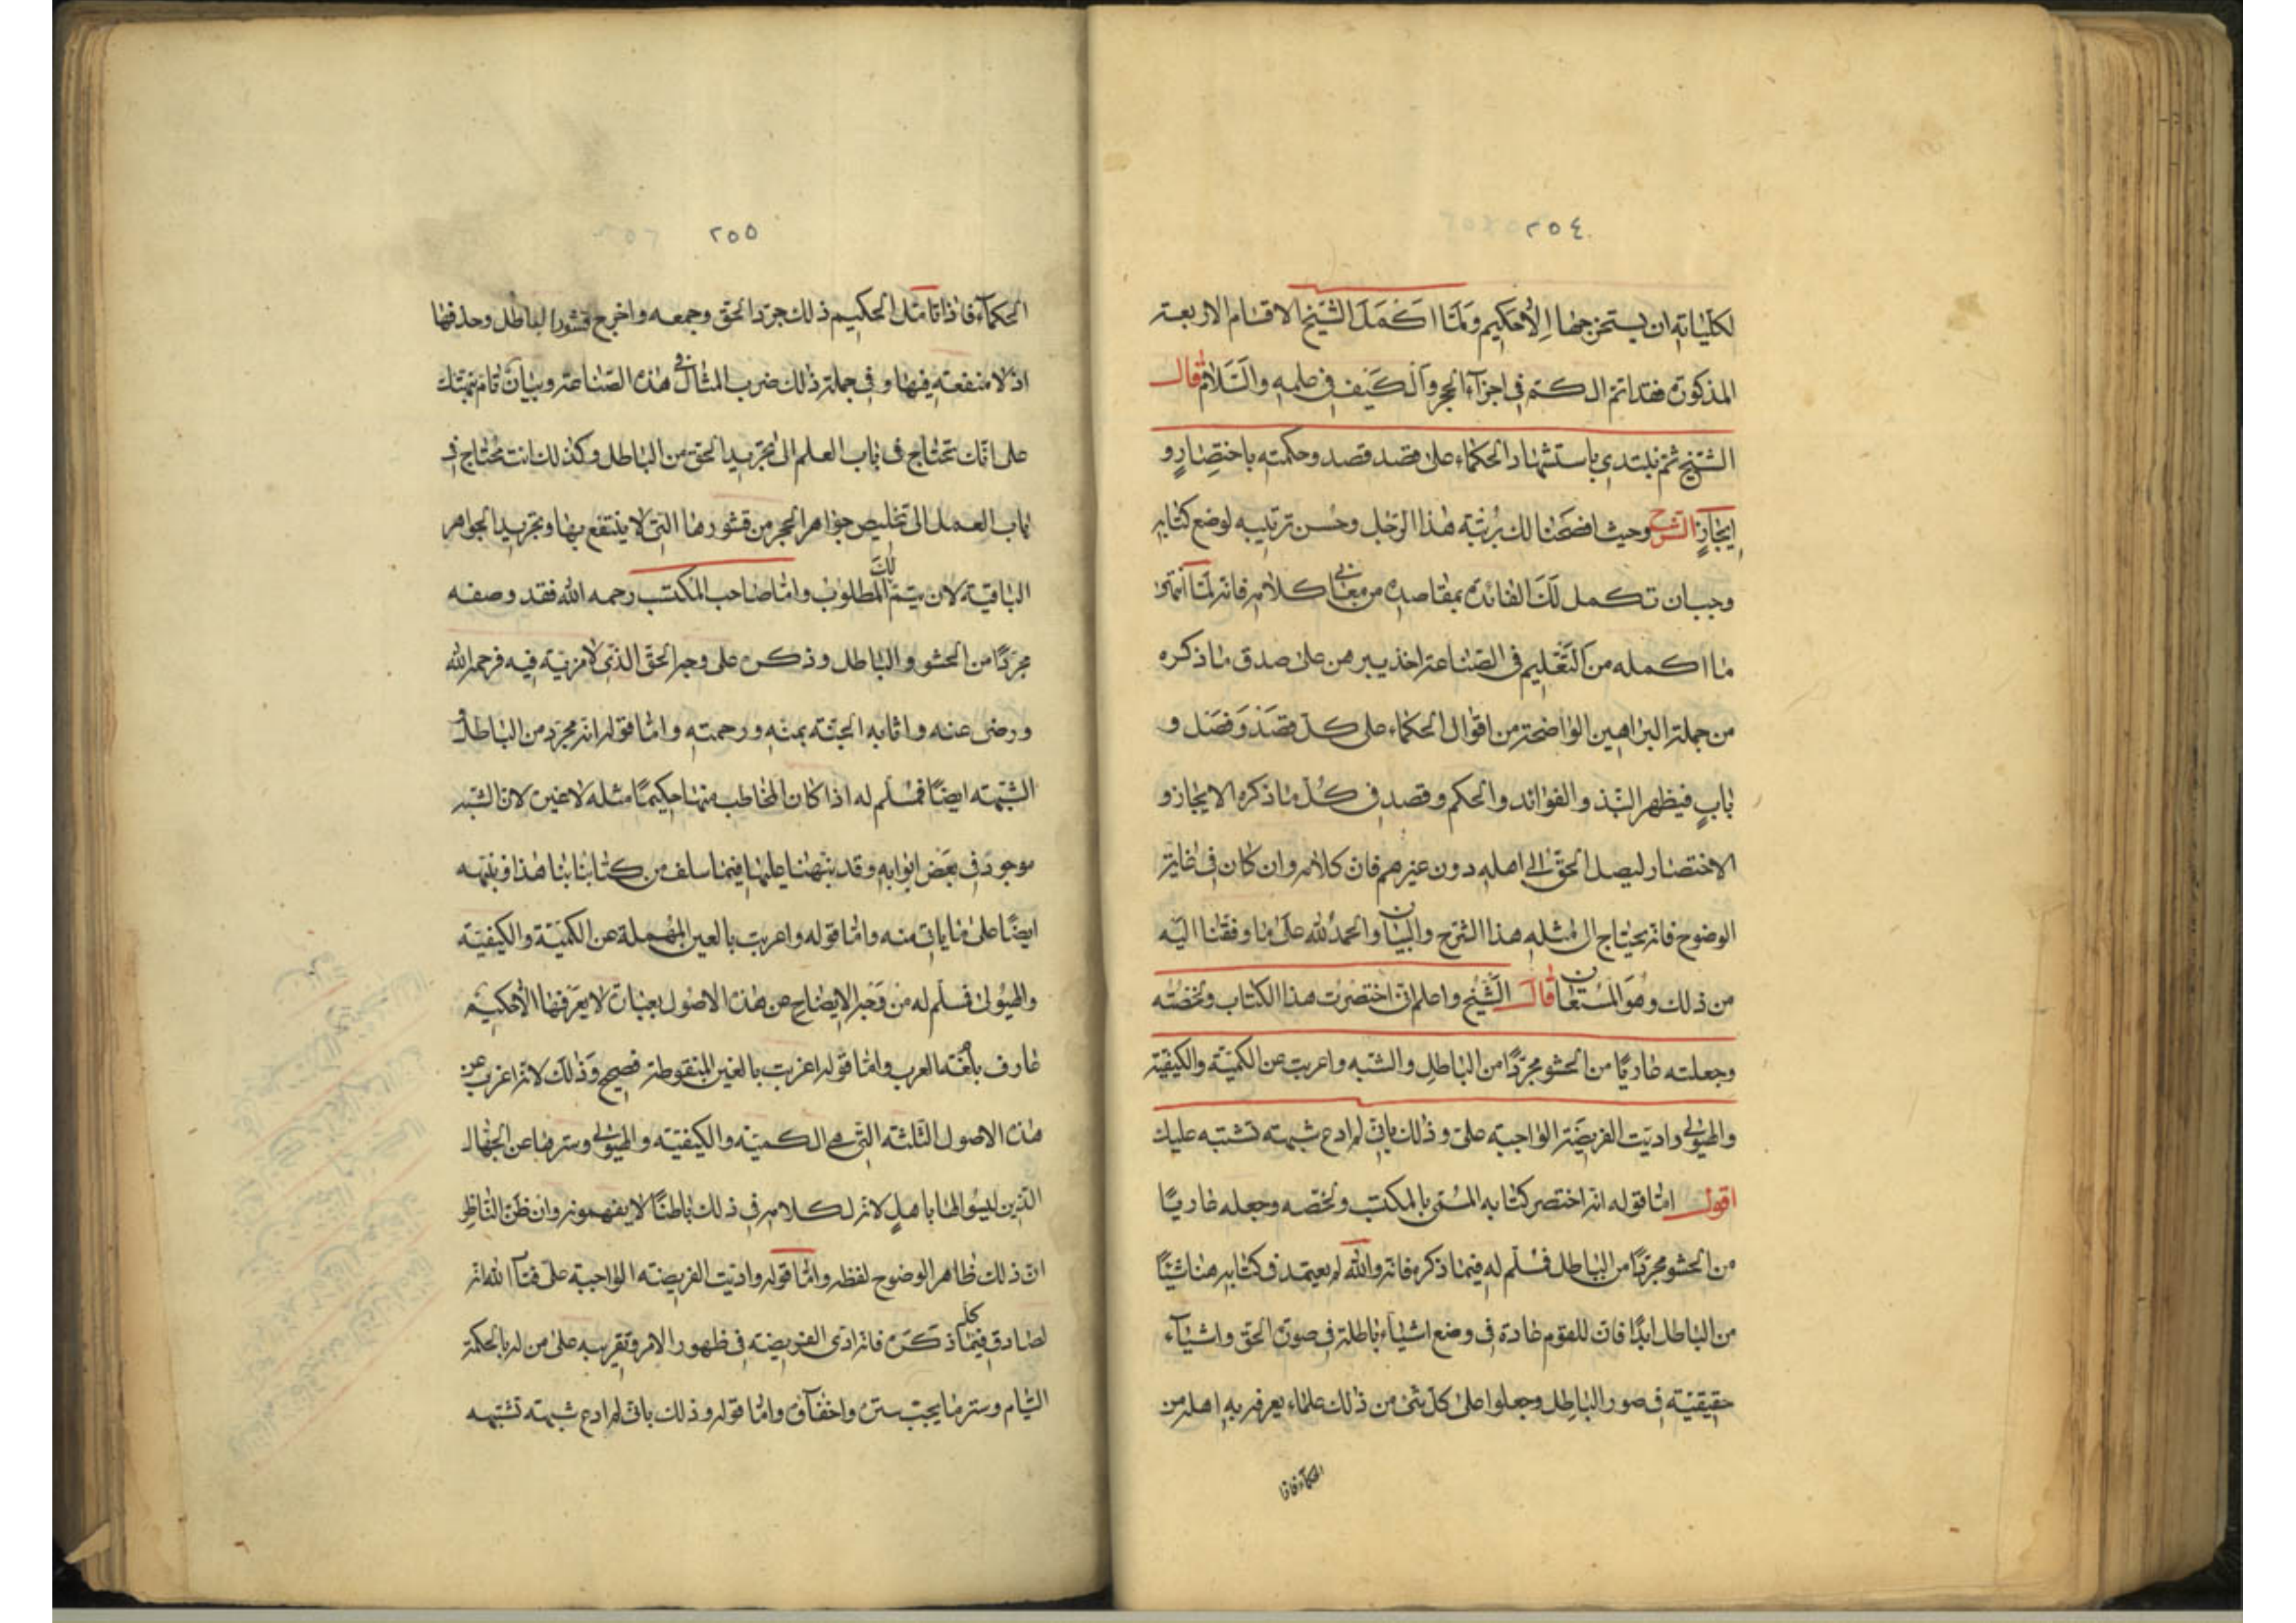 ٢٥٤
لكلياته ان يستخرجها الا حكيم ولما اكمل الشيخ الاقسام الاربعة
المذكورة فقد اتم الكم في اجزآء الحجر والكيف في علمه والسلام قال
الشيخ ثم نبتدي باستشهاد الحكماء على قصد قصد وحكمته باختصار و
ايجاز الشرح وحيث اوضحنا لك رتبة هذا الرجل وحسن ترتيبه لوضع كتابه
وجب ان تكمل لك الفائدة بمقاصده من معاني كلامه فانه لما انتهى
ما اكمله من التعليم في الصناعة اخذ يبرهن على صدق ما ذكره
من جملة البراهين الواضحة من اقوال الحكماء على كل قصد وفصل و
باب فيظهر النبذ والفوائد والحكم وقصد في كل ما ذكره الايجاز و
الاختصار ليصل الحق الى اهله دون غيرهم فان كلامه وان كان في غاية
الوضوح فانه يحتاج الى مثله هذا الشرح والبيان والحمد لله على ما وفقنا اليه
من ذلك وهو المستعان قال الشيخ واعلم اني اختصرت هذا الكتاب ولخصته
وجعلته عاريا من الحشو مجردا من الباطل والشبه واعربت عن الكمية والكيفية
والهيولى واديت الفريضة الواجبة على وذلك باني لم ادع شبهة تشتبه عليك
اقول اما قوله انه اختصر كتابه المسمى بالمكتسب ولخصه وجعله عاريا
من الحشو مجردا من الباطل فسلم له فيما ذكره فانه والله لم يعتمد في كتابه هذا شيئا
من الباطل ابدا فان للقوم عادة في وضع اشياء باطلة في صورة الحق واشيآء
حقيقية في صور الباطل وجعلوا على كل شئ من ذلك علماء يعرفه به اهله من
الحكمآء فاذا
٢٥٥
الحكمآء فاذا تامل الحكيم ذلك جرد الحق وجمعه واخرج قشور الباطل وحذفها
اذ لا منفعة فيها وفي جملة ذلك ضرب المثال في هذه الصناعة وبيان تام نبهتك
على انك تحتاج في باب العلم الى تجريد الحق من الباطل وكذلك انت محتاج في
باب العمل الى تخليص جواهر الحجر من قشورها التي لا ينتفع بها وتجريد الجواهر
الباقية لان يتم لك المطلوب واما صاحب المكتسب رحمه الله فقد وصفه
مجردا من الحشو والباطل وذكره على وجه الحق الذي لا مزية فيه فرحمه الله
ورضى عنه واثابه الجنة بمنه ورحمته واما قوله انه مجرد من الباطل و
الشبهة ايضا فمسلم له اذا كان المخاطب منها حكيما مثله لا غير لان الشبه
موجود في بعض ابوابه وقد نبهنا عليها فيما سلف من كتابنا هذا وننبه
ايضا على ما ياتي منه واما قوله واعربت بالعين المهملة عن الكمية والكيفية
والهيولى فسلم له من وجه الايضاح عن هذه الاصول بعبارة لا يعرفها الا حكيم
عارف بلغة العرب واما قوله اغربت بالغين المنقوطة فصيح وذلك لانه اغرب عن
هذه الاصول الثلثة التي هي الكمية والكيفية والهيولى وسترها عن الجهال
الذين ليسوا لها باهل لانه لكلامه في ذلك باطنا لا يفهمونه وان ظن الناظر
ان ذلك ظاهر الوضوح لفظه واما قوله واديت الفريضة الواجبة على فتا الله انه
لصادق فيما ذكره كله فانه ادى الفريضة في ظهور الامر وتقريبه على من له بالحكمة
التيام وستر ما يجب ستره واخفآؤه واما قوله وذلك باني لم ادع شبهة تشتبه